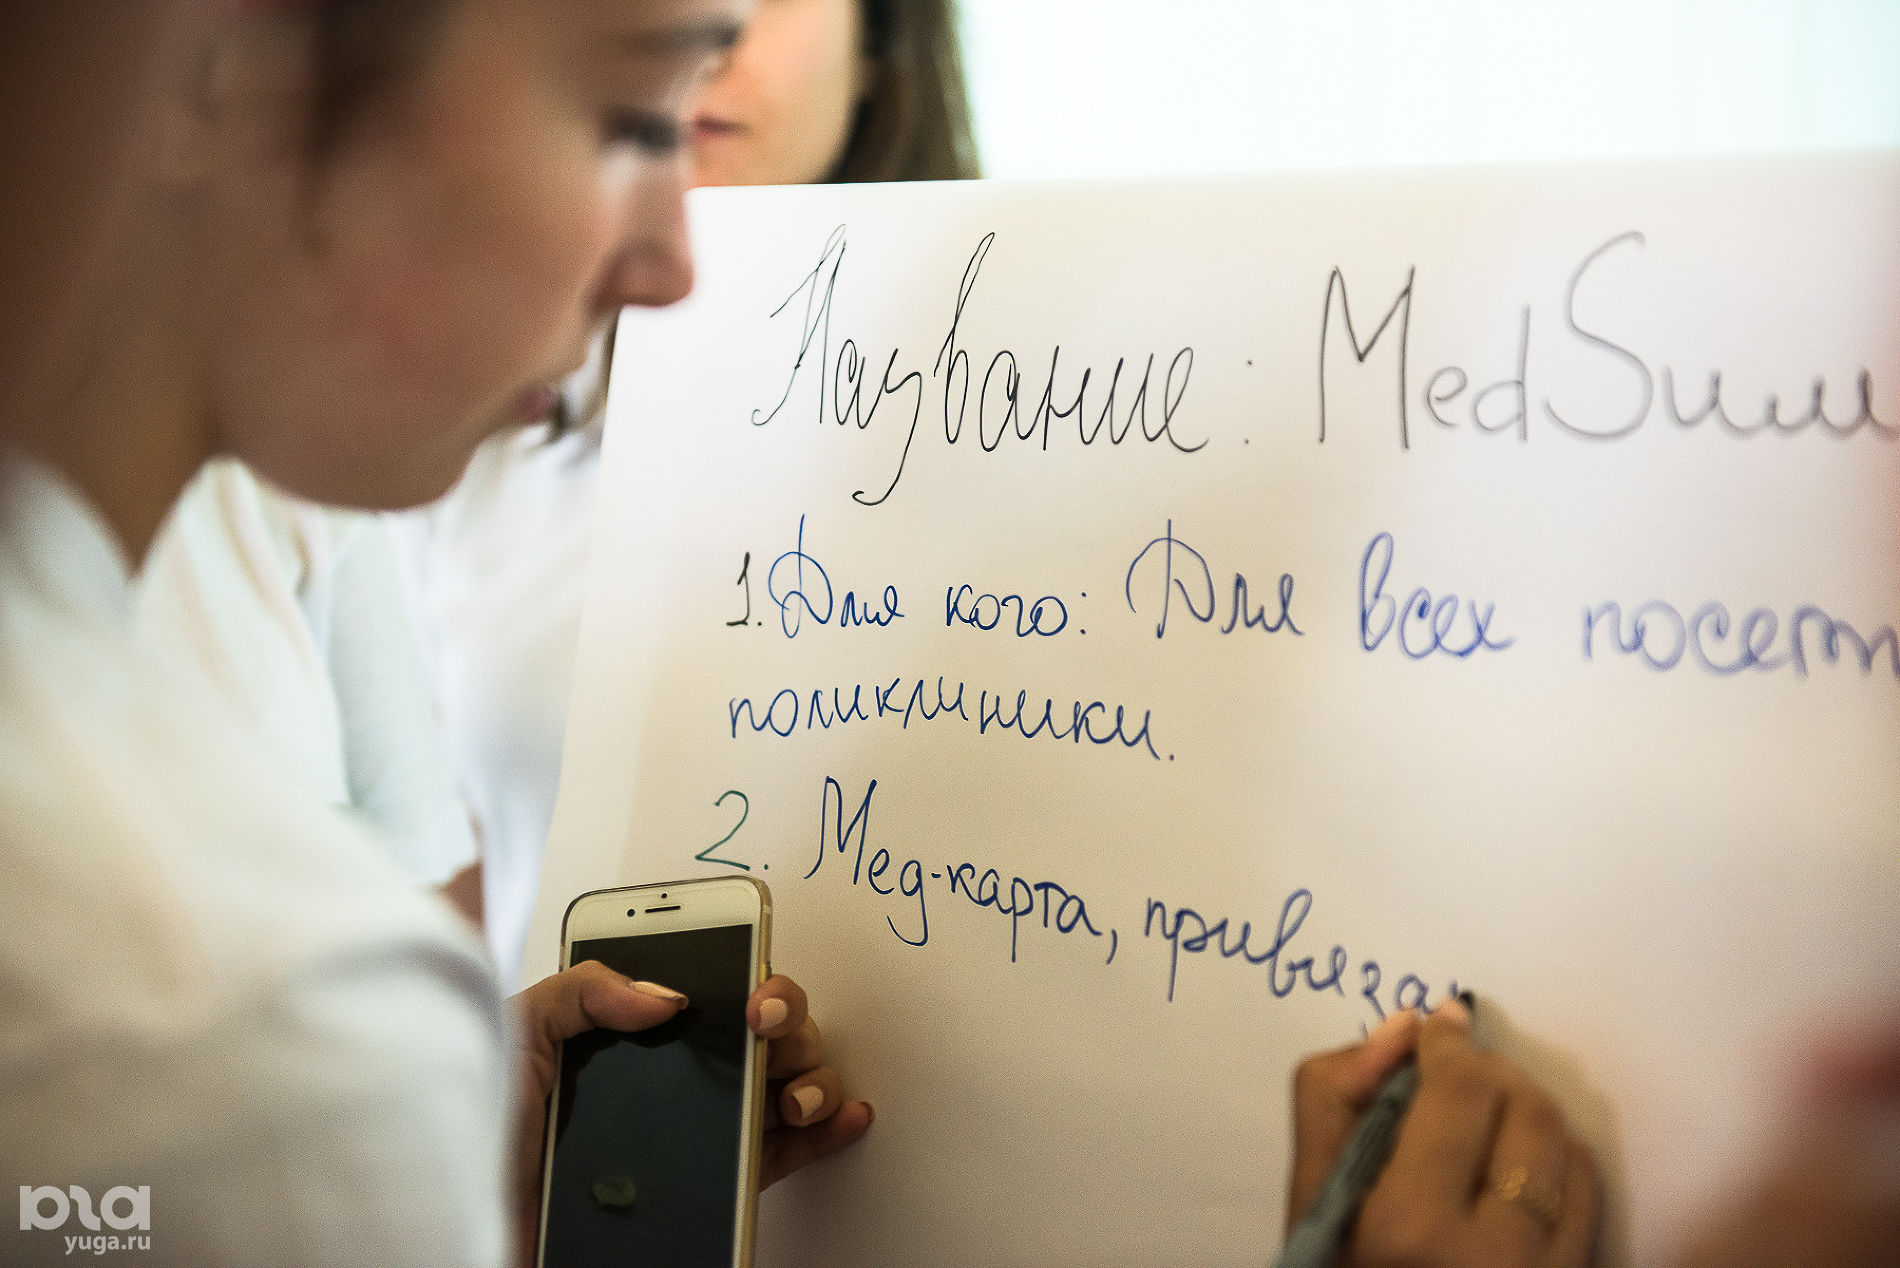 Название: MedSimm
1. Для кого: Для всех посет
поликлиники.
2. Мед-карта, привяза
yuga.ru